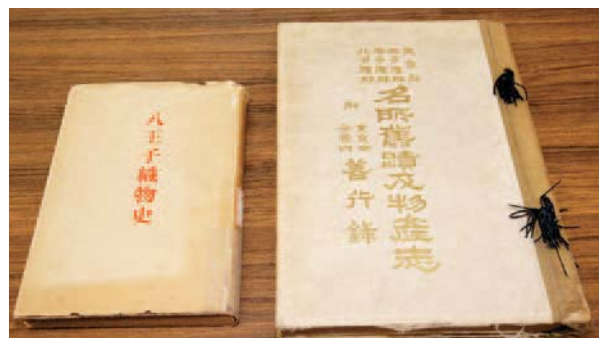 八王子織物史
北多摩郡
名所舊蹟及物產志
附
善行錄